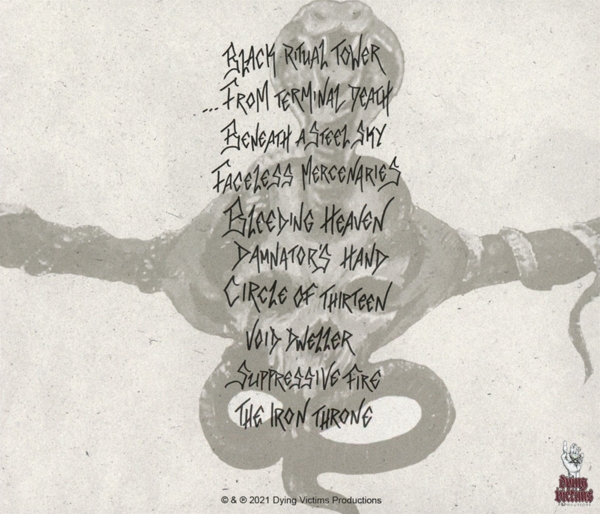 BLACK RITUAL TOWER
...FROM TERMINAL DEATH
BENEATH A STEEL SKY
FACELESS MERCENARIES
BLEEDING HEAVEN
DAMNATOR'S HAND
CIRCLE OF THIRTEEN
VOID DWELLER
SUPPRESSIVE FIRE
THE IRON THRONE
© & ℗ 2021 Dying Victims Productions
Dying
Victims
PRODUCTIONS